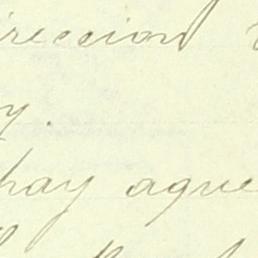 ireccion
y.
hay ague